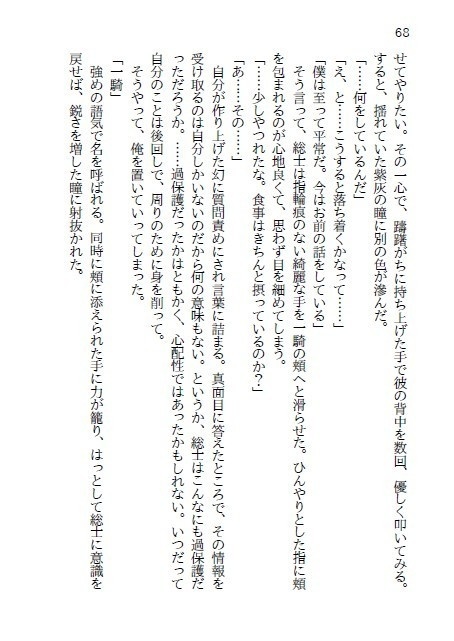 68
せてやりたい。その一心で、躊躇がちに持ち上げた手で彼の背中を数回、優しく叩いてみる。
すると、揺れていた紫灰の瞳に別の色が滲んだ。
「……何をしているんだ」
「え、と……こうすると落ち着くかなって……」
「僕は至って平常だ。今はお前の話をしている」
そう言って、総士は指輪痕のない綺麗な手を一騎の頬へと滑らせた。ひんやりとした指に頬
を包まれるのが心地良くて、思わず目を細めてしまう。
「……少しやつれたな。食事はきちんと摂っているのか？」
「あ……その……」
自分が作り上げた幻に質問責めにされ言葉に詰まる。真面目に答えたところで、その情報を
受け取るのは自分しかいないのだから何の意味もない。というか、総士はこんなにも過保護だ
っただろうか。……過保護だったかはともかく、心配性ではあったかもしれない。いつだって
自分のことは後回しで、周りのために身を削って。
そうやって、俺を置いていってしまった。
「一騎」
強めの語気で名を呼ばれる。同時に頬に添えられた手に力が籠り、はっとして総士に意識を
戻せば、鋭さを増した瞳に射抜かれた。